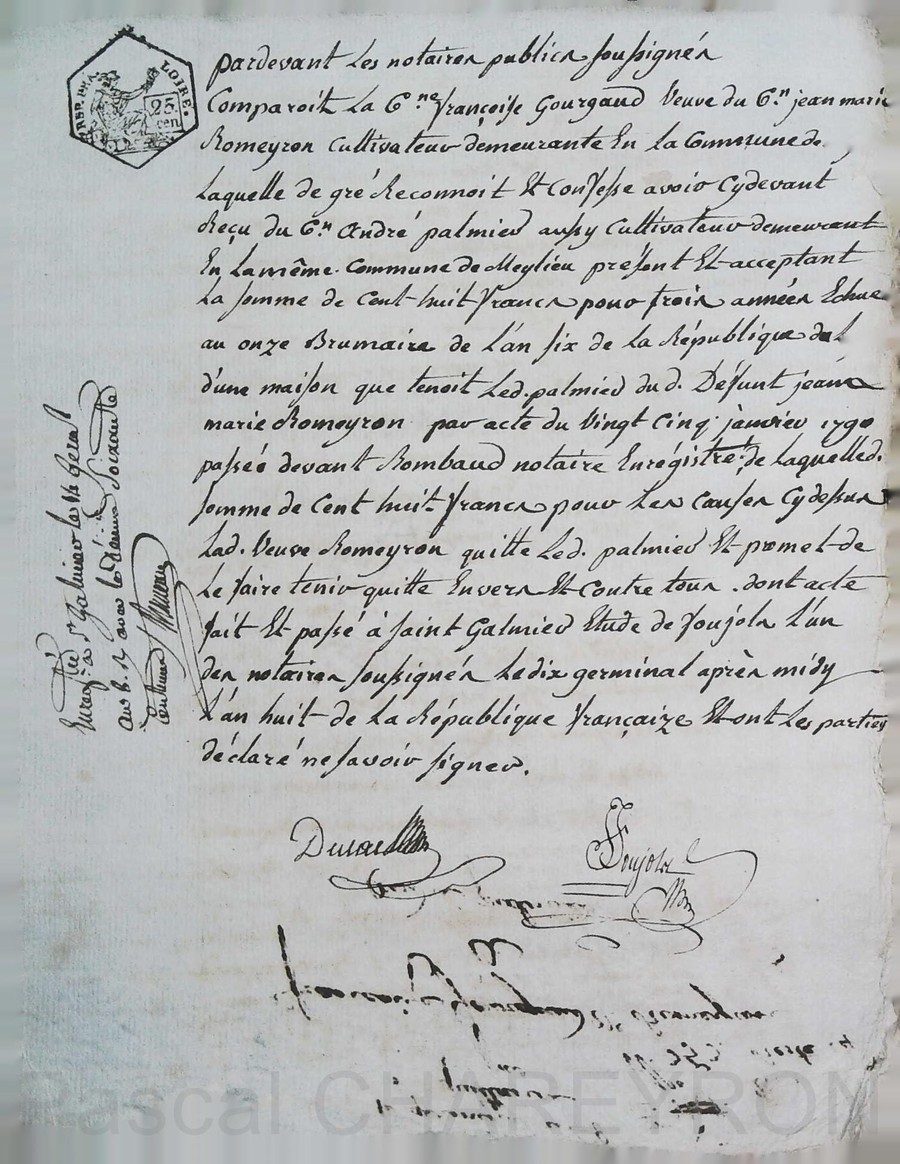 LOIRE.
25
cen
pardevant Les notaires publics soussignés
Comparoit La C.ne françoise Gourgaud Veuve du C.n jean marie
Romeyron Cultivateur demeurante En la Commune de
Laquelle de gré Reconnoit Et Confesse avoir Cydevant
Reçu du C.n André palmier aussy Cultivateur demeurant
En La même Commune de Meylieu présent Et acceptant
La somme de Cent huit francs pour trois années Echue
au onze Brumaire de L'an six de la République del
d'une maison que tenoit Led. palmier du d. Défunt jean
marie Romeyron par acte du Vingt Cinq janvier 1790
passée devant Rombaud notaire Enrégistré: de Laquelled.
somme de Cent huit francs pour Les Causes Cydessus
Lad. Veuve Romeyron quitte Led. palmier Et promet de
Le faire tenir quitte Envers Et Contre tous. dont acte
fait Et passé à saint Galmier Etude de Poujols L'un
des notaires soussignés Le dix germinal après midy
L'an huit de La République françaize Et ont Les parties
déclaré ne savoir signer.
Poujols
Enreg.tré à S.t Galmier le 14 Géral
an 8.
centimes
Pascal CHAREYRON